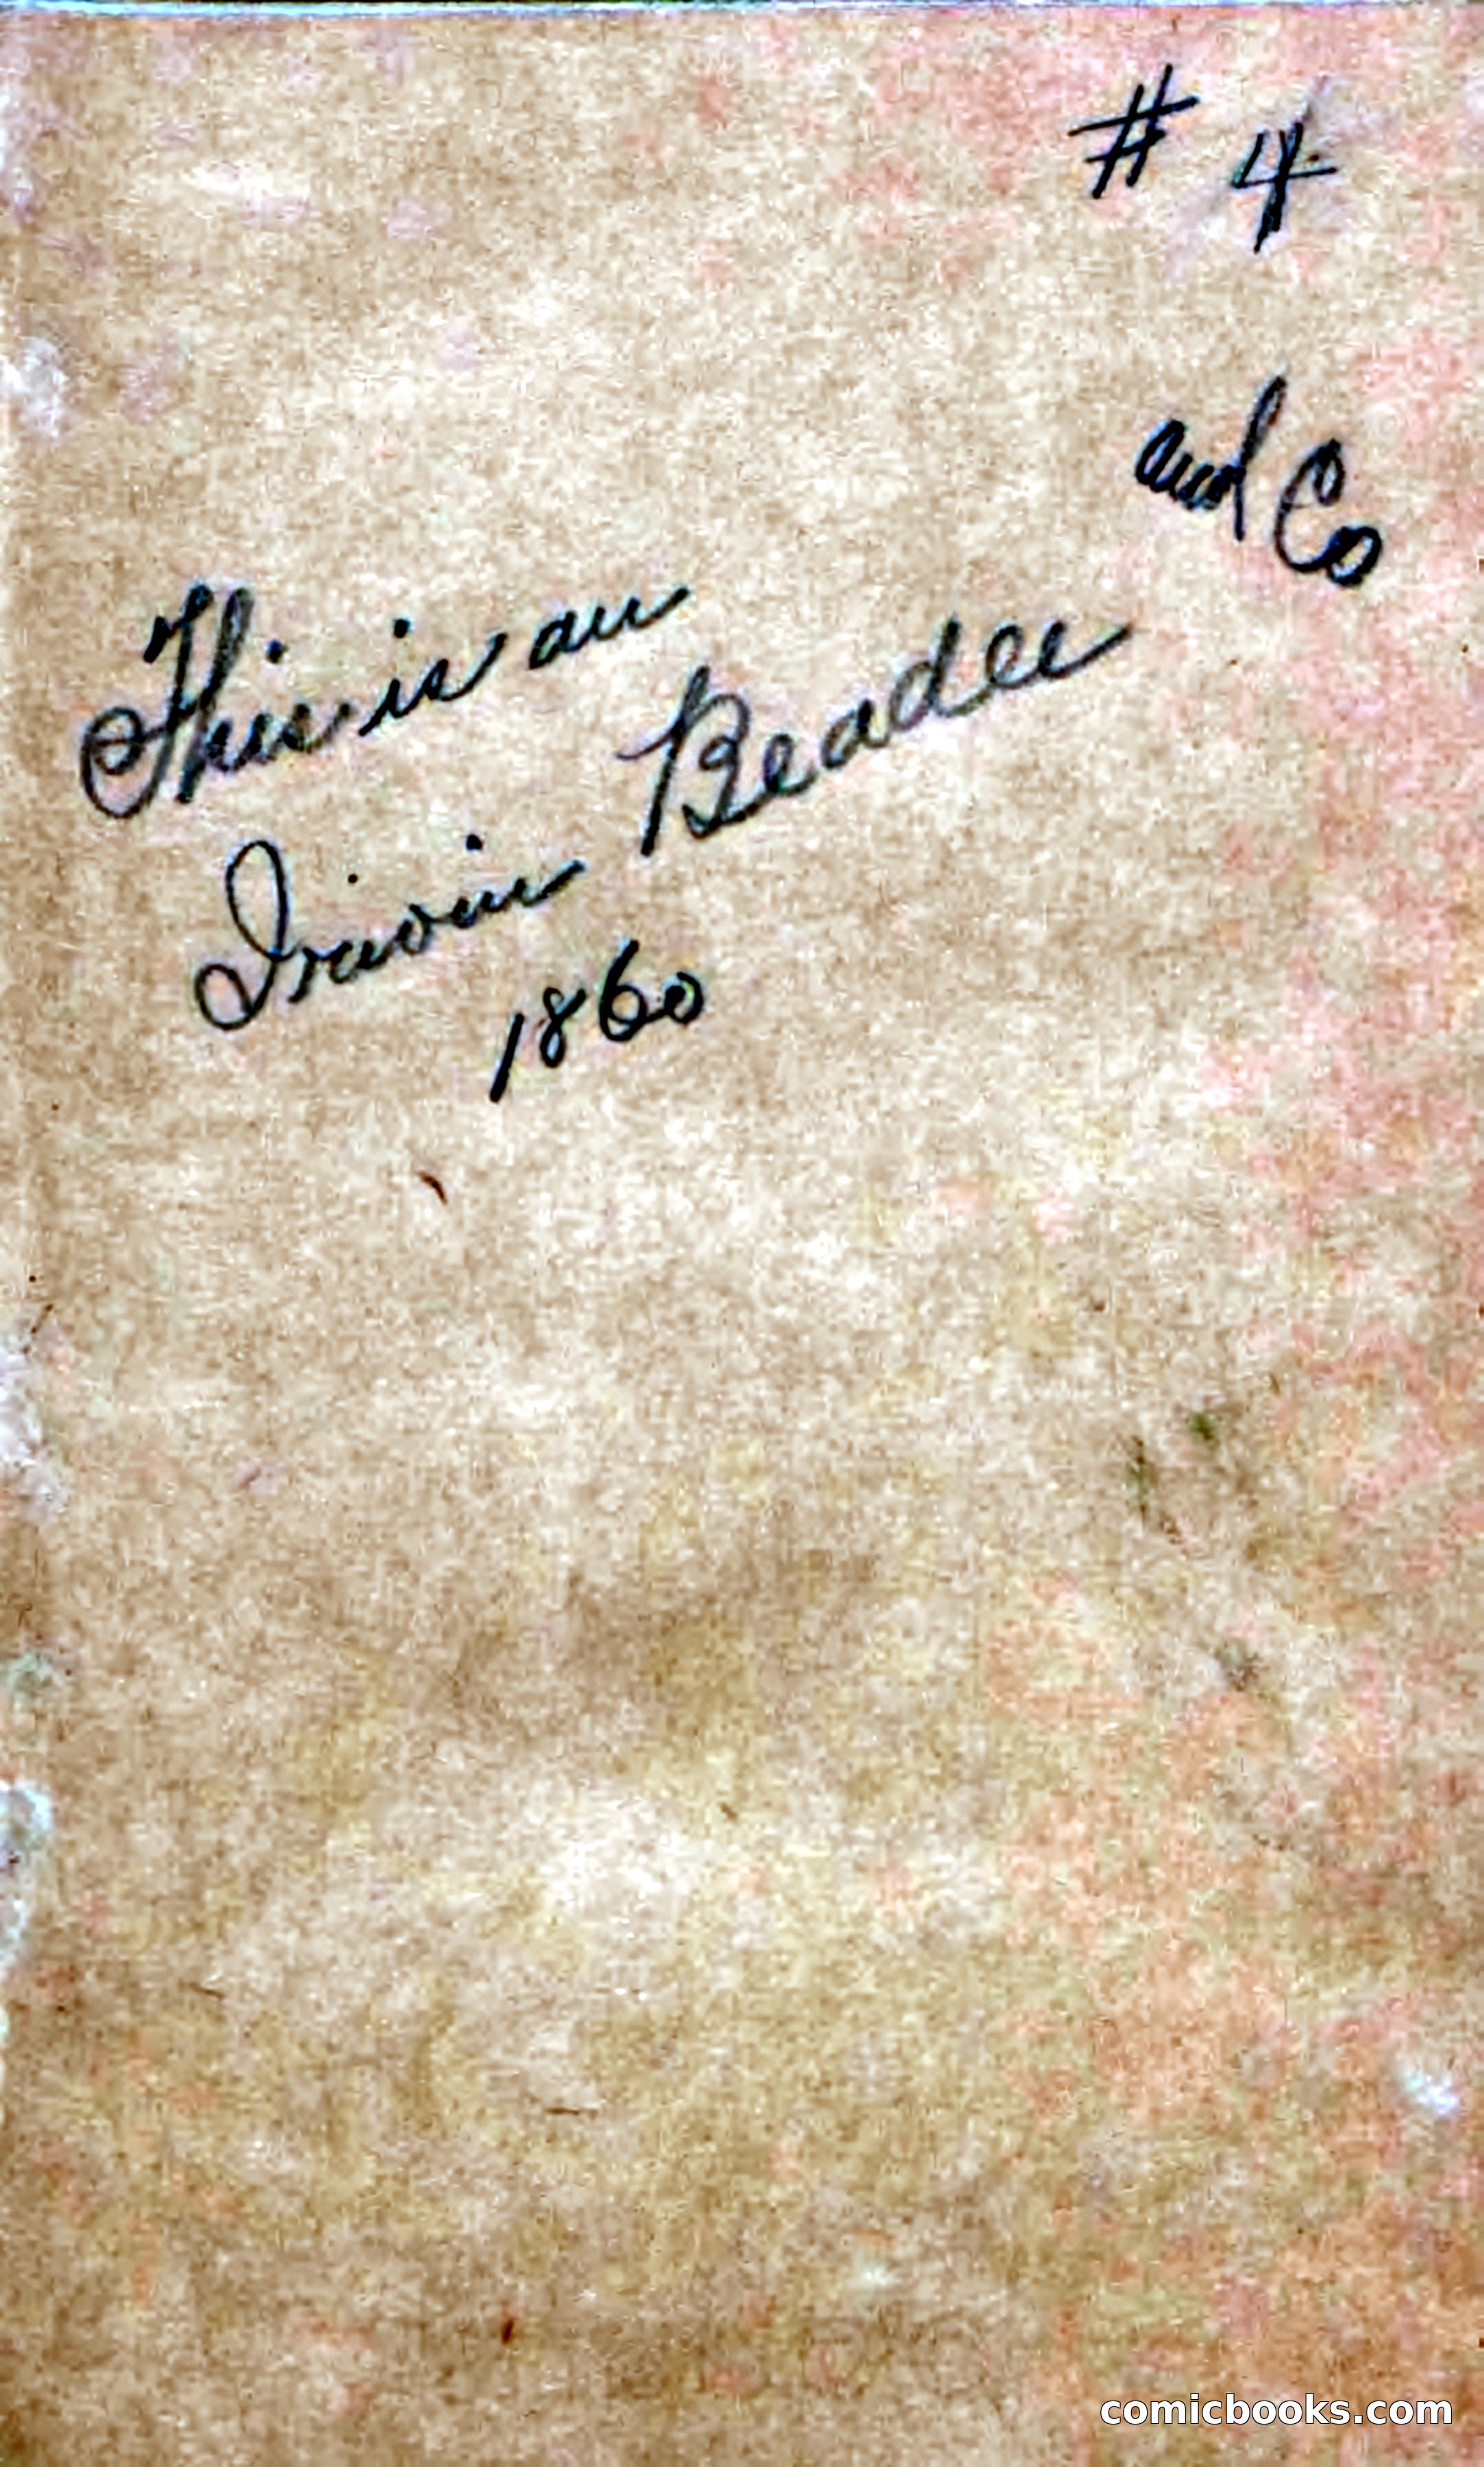 # 4
and Co
This is an
Irwin Beadle
1860
comicbooks.com